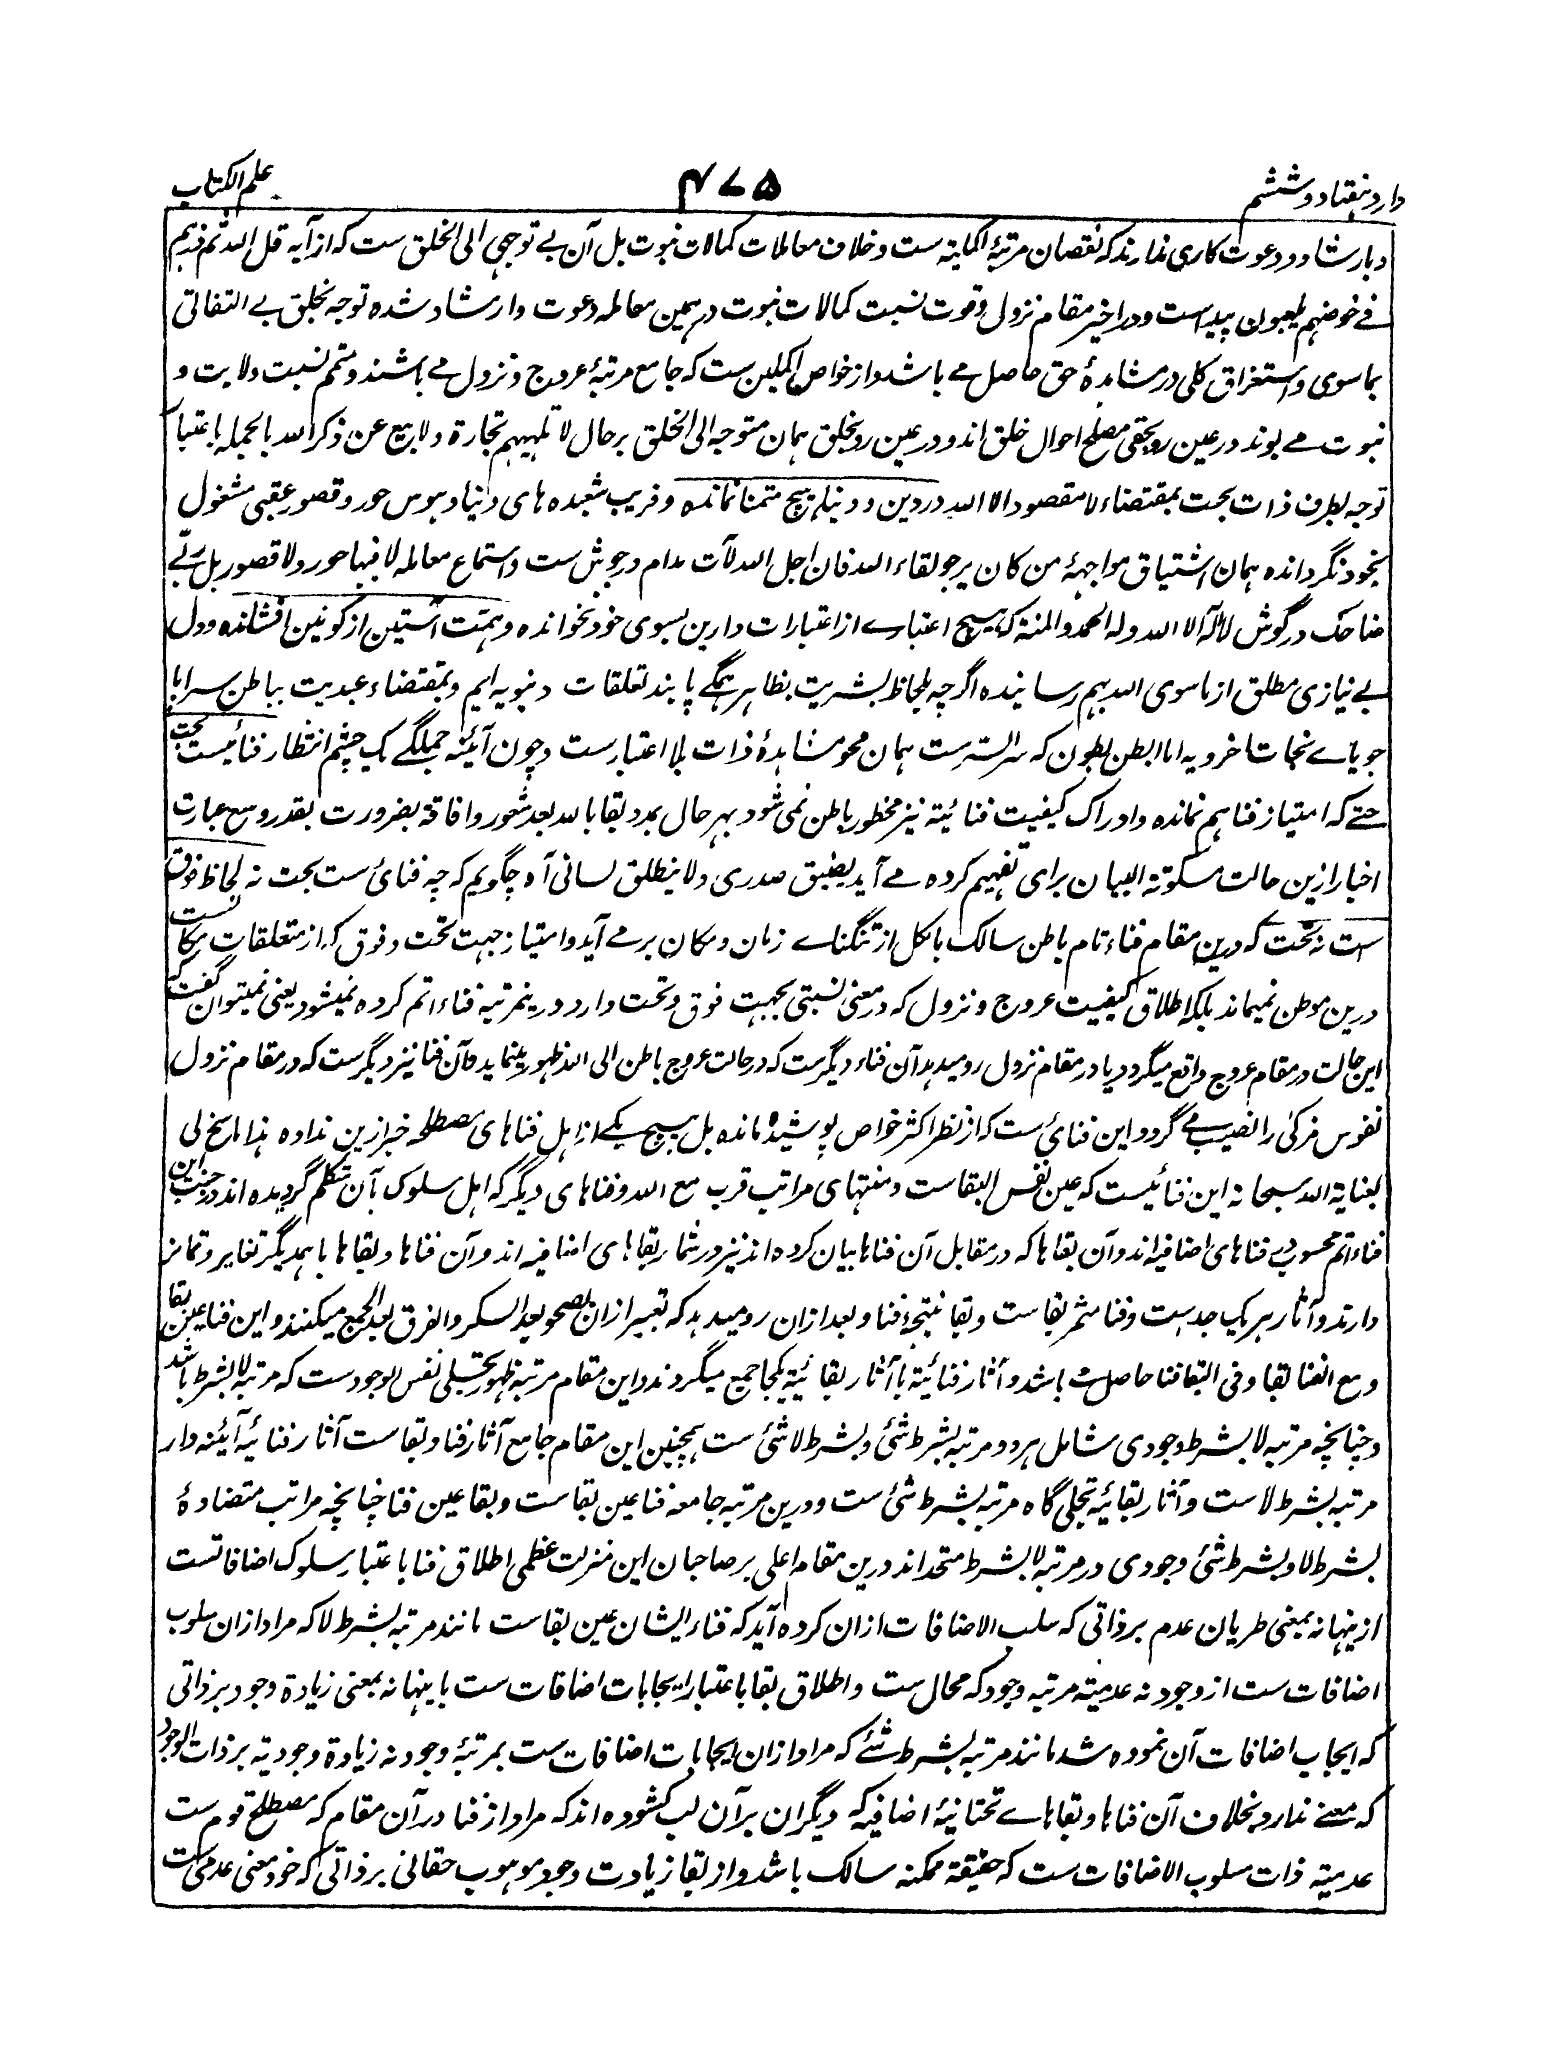 وارد هفتاد و ششم
۴۷۵
علم الکتاب
و بارشاد و دعوت کاری ندارند که نقصان مرتبهٔ اکملیته ست و خلاف معاملات کمالات نبوت بل آن بے توجهی الی الخلق ست که از آیه قل الله ثم ذرهم
فے خوضهم یلعبون پیداست و در اخیر مقام نزول و قوت نسبت کمالات نبوت در همین معامله دعوت و ارشاد شده توجه بخلق بے التفاتی
بما سوی و استغراق کلی در مشاهدهٔ حق حاصل مے باشد و از خواص اکملین ست که جامع مرتبهٔ عروج و نزول مے باشند و متمم نسبت ولایت و
نبوت مے بوند در عین رو بحقی مصلح احوال خلق اند و در عین رو بخلق همان متوجه الی الخلق بر حال لا تلهیهم تجارة ولا بیع عن ذکر الله بالجمله باعتبار
توجه بطرف ذات بحت بمقتضاء لا مقصود الا الله در دین و دنیا هیچ متمنا نمانده و فریب شعبده های دنیا و هوس حور و قصور عقبی مشغول
بخود نگردانده همان اشتیاق مواجههٔ من کان یرجو لقاء الله فان اجل الله لآت مدام در جوش ست و استماع معامله لا فیها حور ولا قصور بل ربّے
ضاحک در گوش لا اله الا الله وله الحمد والمنة که هیچ اعتبارے از اعتبارات دارین بسوی خود نخوانده و همت آستین از کونین افشانده و دل
بے نیازی مطلق از ماسوی الله بهم رسانیده اگرچه بلحاظ بشریت بظاهر همگے پابند تعلقات دنیویه ایم و بمقتضاء عبدیت بباطن سراپا
جویاے نجات اخرویه اما ابطن بطون که سر السّرست همان محو مشاهدهٔ ذات بلا اعتبارست و چون آئینه جملگے یک چشم انتظار فنائیست بحت
حتے که امتیاز فنا هم نمانده و ادراک کیفیت فنائیته نیز مخطور باطن نمی شود بهر حال بمدد بقا بالله بعد شعور و افاقة بضرورت بقدر وسع عبارت
اخبار ازین حالت مسکوتة البیان برای تفهیم کرده مے آید یضیق صدری ولا ینطلق لسانی آه چگویم که چه فنائ ست بحت نه لحاظ فوق
است نه تحت که درین مقام فناء تام باطن سالک بالکل از تنگناے زمان و مکان بر مے آید و امتیاز جهت تحت و فوق که از متعلقات مکانست
درین موطن نمیماند بلکه اطلاق کیفیت عروج و نزول که در معنی نسبتی بجهت فوق و تحت دارد درینمرتبه فناء اتم کرده نمیشود یعنی نمیتوان گفت که
این حالت در مقام عروج واقع میگردد یا در مقام نزول رو میدهد آن فناء دیگرست که در حالت عروج باطن الی الله ظهور مینماید و آن فنا نیز دیگرست که در مقام نزول
نفوس مزکی را نصیب مے گردد و این فنائ ست که از نظر اکثر خواص پوشیده مانده بل هیچ یکے از اهل فناهای مصطلحه خبر ازین نداده هذا ما سنح لی
بعنایة الله سبحانه این فنائیست که عین نفس البقاست و منتهای مراتب قرب مع الله و فناهای دیگر که اهل سلوک بآن متکلم گردیده اند در جنب این
فناء اتم محسوب در فناهای اضافیه اند و آن بقاها که در مقابل آن فناها بیان کرده اند نیز در شمار بقاهای اضافیه اند و آن فناها و بقاها باهمدیگر تغایر و تمایز
دارند و آثار هر یک جداست و فنا مثمر بقاست و بقا نتیجهٔ فنا و بعد ازان رو میدهد که تعبیر ازان بصحو بعد السکر و الفرق بعد الجمع میکنند و این فنا عین بقا
و مع الفنا بقا و فی البقا فنا حاصل مے باشد و آثار فنائیته با آثار بقائیته یکجا جمع میگردند و این مقام مرتبه ظهور تجلی نفس الوجود ست که مرتبه لا بشرط باشد
و چنانچه مرتبه لا بشرط وجودی شامل هر دو مرتبه بشرط شئ و بشرط لا شئ ست همچنین این مقام جامع آثار فنا و بقاست آثار فنائیه آئینه دار
مرتبه بشرط لاست و آثار بقائیه تجلی گاه مرتبه بشرط شئ ست و درین مرتبه جامعه فنا عین بقاست و بقا عین فنا چنانچه مراتب متضادهٔ
بشرط لا و بشرط شئ وجودی در مرتبه لا بشرط متحد اند درین مقام اعلی بر صاحبان این منزلت عظمی اطلاق فنا باعتبار سلوک اضافاتست
ازینها نه بمعنی طریان عدم بر ذاتی که سلب الاضافات ازان کرده آید که فناء ایشان عین بقاست مانند مرتبه بشرط لا که مراد ازان سلوب
اضافات ست از وجود نه عدمیته مرتبه وجود که محال ست و اطلاق بقا باعتبار ایجابات اضافات ست باینها نه بمعنی زیادة وجود بر ذاتی
که ایجاب اضافات آن نموده شد مانند مرتبه بشرط شئے که مراد ازان ایجابات اضافات ست بمرتبهٔ وجود نه زیادة وجودیته بر ذات الوجود
که معنے ندارد بخلاف آن فناها و بقاهاے تحتانیهٔ اضافیه که دیگران بر آن لب کشوده اند که مراد از فنا در آن مقام که مصطلح قوم ست
عدمیته ذات مسلوب الاضافات ست که حقیقة ممکنه سالک باشد و از بقا زیادت وجود موهوب حقانی بر ذاتی که خود معنی عدمی ست